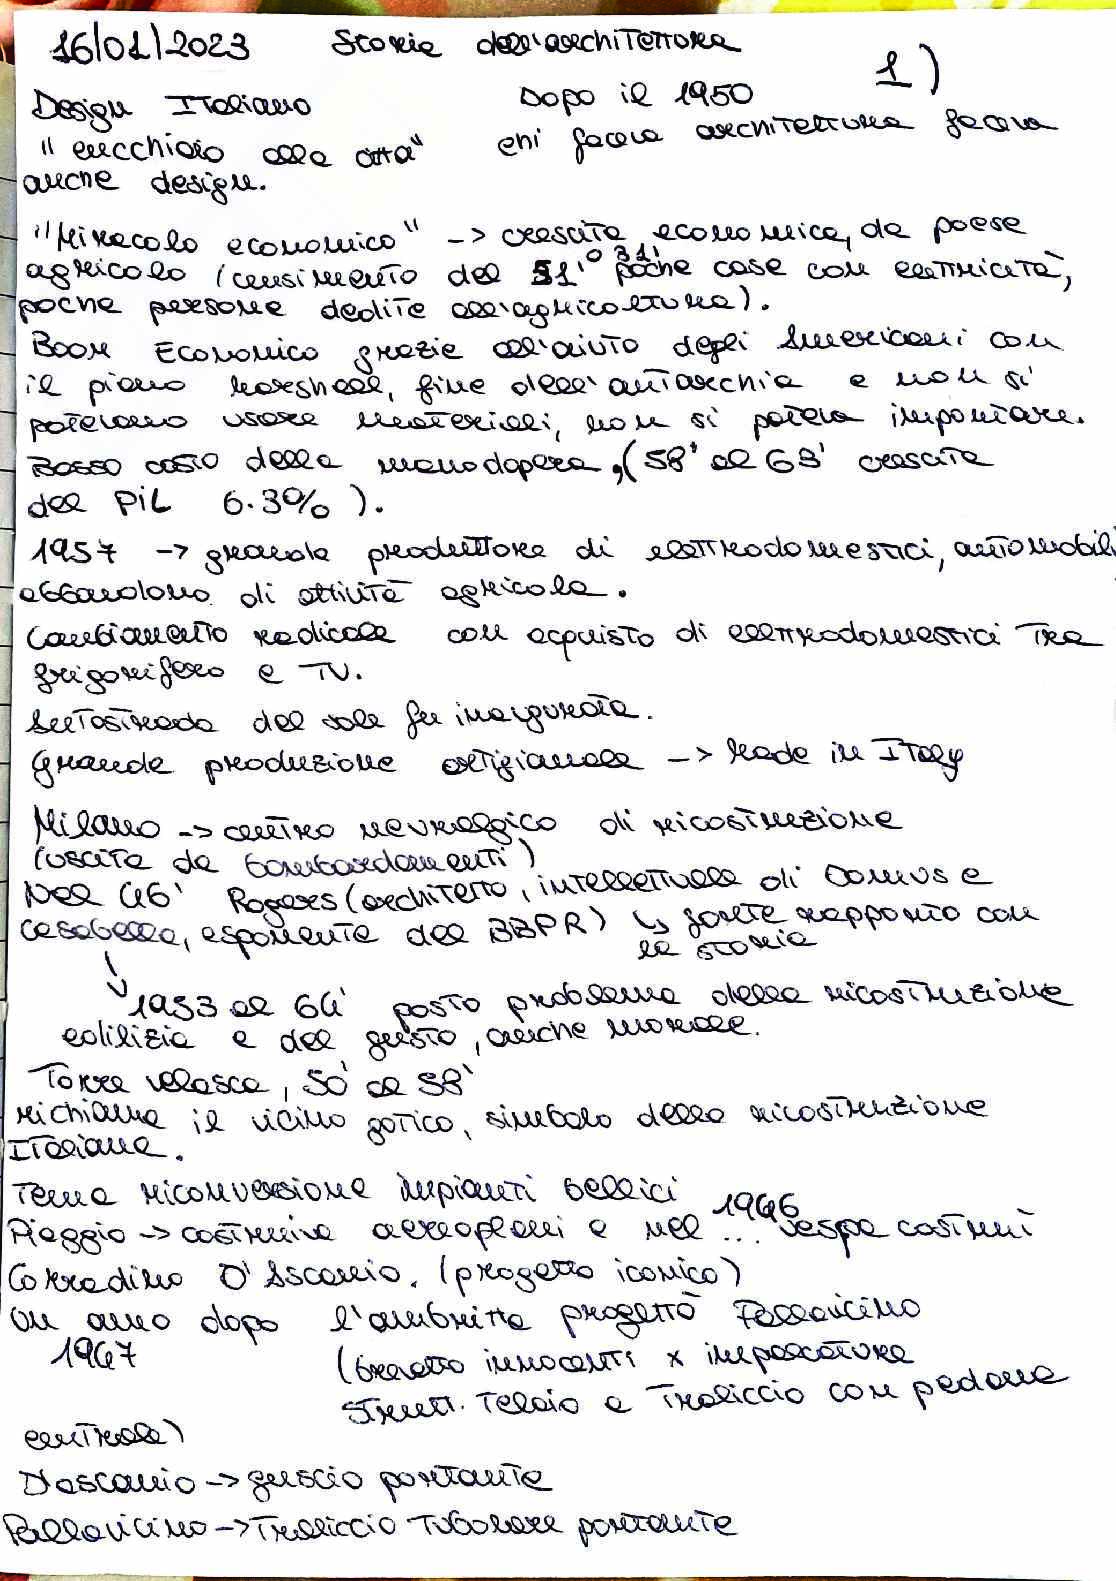 16/01/2023 Storia dell'architettura
1)
Design Italiano Dopo il 1950
"cucchiaio alla città" chi faceva architettura faceva
anche design.
"Miracolo economico" -> crescita economica, da paese
agricolo (censimento del 51' o 31' poche case con elettricità,
poche persone dedite all'agricoltura).
Boom Economico grazie all'aiuto degli Americani con
il piano Marshall, fine dell'autarchia e non si
potevano usare materiali, non si poteva importare.
Basso costo della manodopera, (58' al 63' crescita
del PiL 6.3%).
1957 -> grande produttore di elettrodomestici, automobili
abbandono di attività agricola.
Cambiamento radicale con acquisto di elettrodomestici tra
frigorifero e TV.
Autostrada del sole fu inaugurata.
Grande produzione artigianale -> Made in Italy
Milano -> centro nevralgico di ricostruzione
(uscita da bombardamenti)
Nel 46' Rogers (architetto, intellettuale di Domus e
casabella, esponente del BBPR) ↳ forte rapporto con
la storia
↓ 1953 al 64' posto problema della ricostruzione
edilizia e del gusto, anche morale.
Torre velasca, 50' al 58'
richiama il vicino gotico, simbolo della ricostruzione
Italiana.
Tema riconversione impianti bellici
Piaggio -> costruiva aereoplani e nel ... 1946 vespa costruì
Corradino D'Ascanio. (progetto iconico)
Un anno dopo l'ambretta progettò Pallavicino
1947 (brevetto innocenti x impalcature
Strutt. Telaio a Traliccio con pedana
centrale)
D'ascanio -> guscio portante
Pallavicino -> Traliccio Tubolare portante